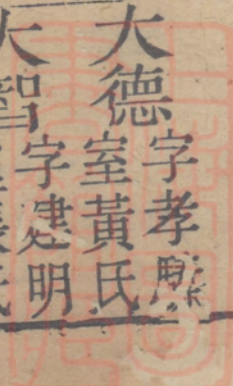 大德
字孝
室黃氏
大智
字建明
氏